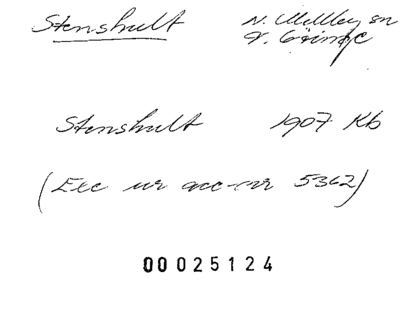 Stenshult N. Mellby sn
V. Göinge
Stenshult 1907 Kb
(Exc ur acc-nr 5362)
00025124